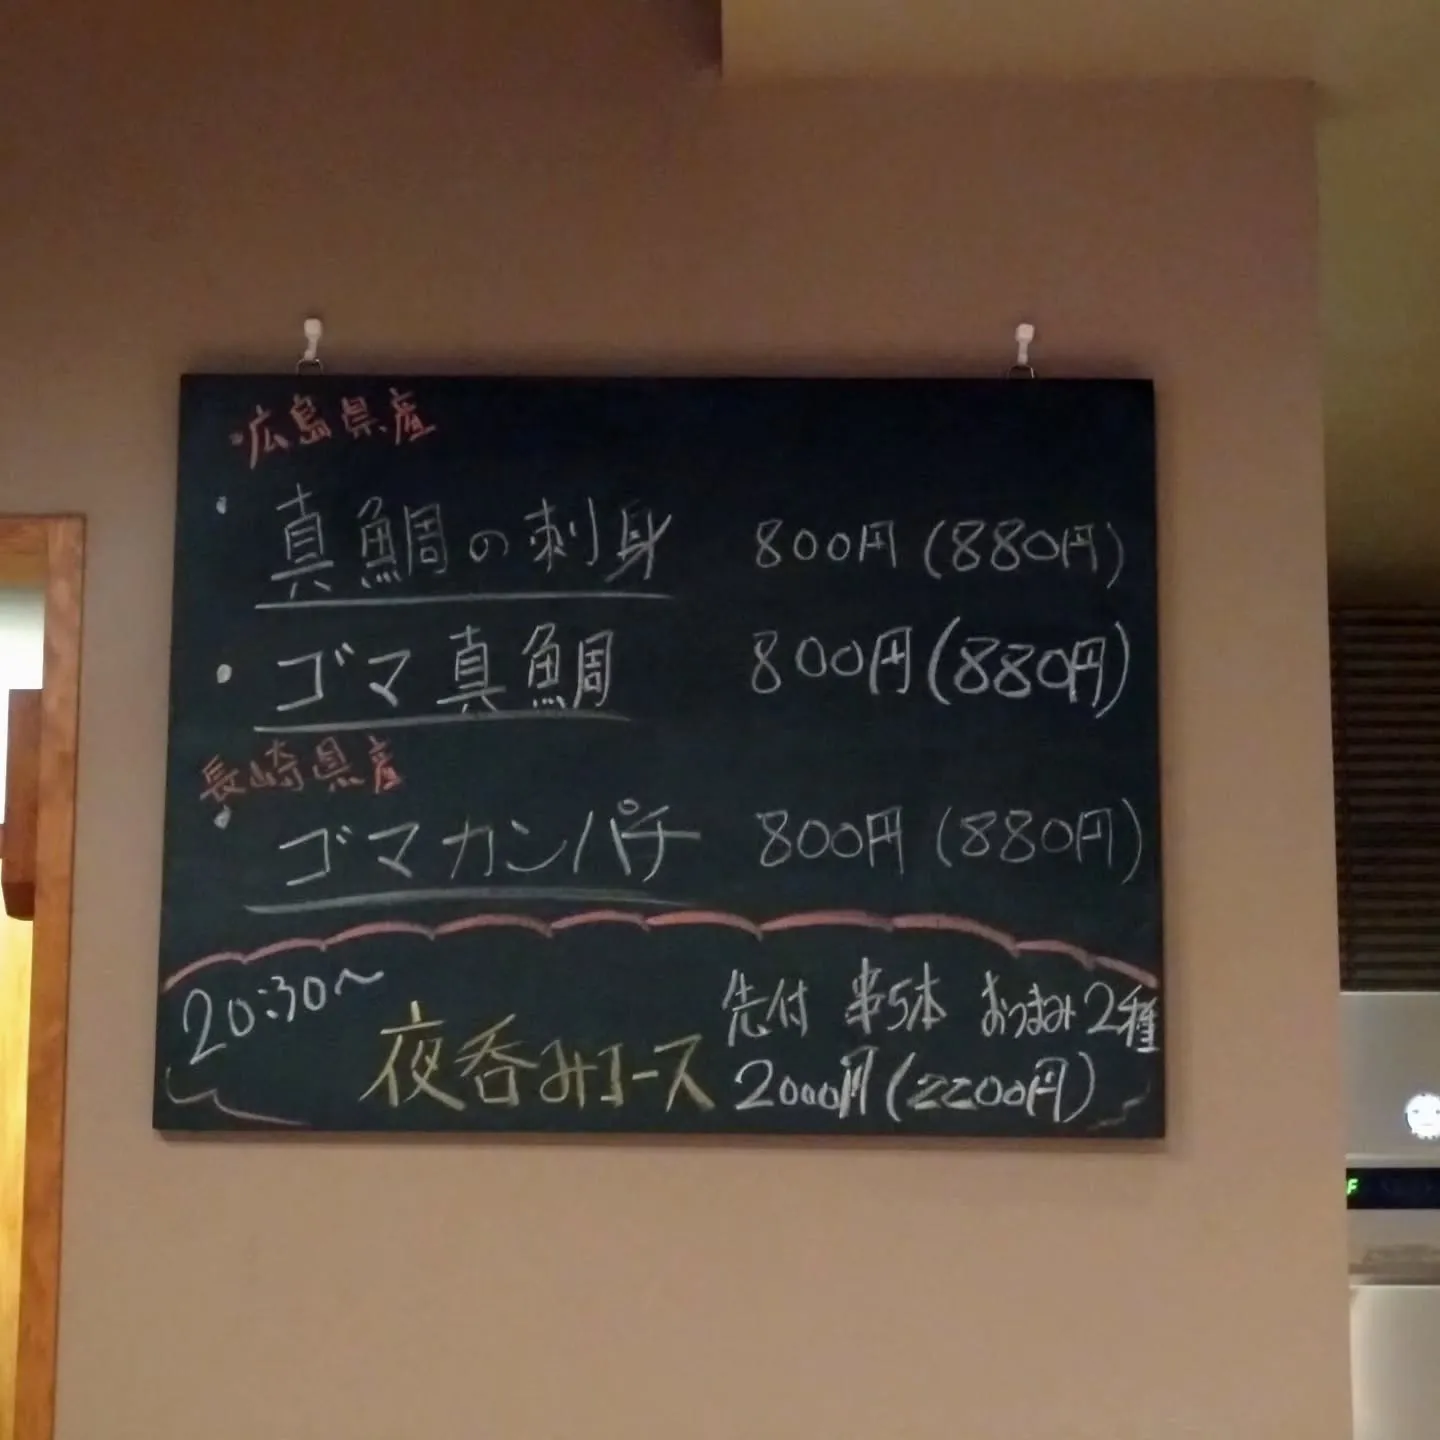 ・広島県産
・真鯛の刺身 800円(880円)
・ゴマ真鯛 800円(880円)
長崎県産
・ゴマカンパチ 800円(880円)
20:30〜
先付 串5本 おつまみ2種
夜呑みコース 2000円(2200円)